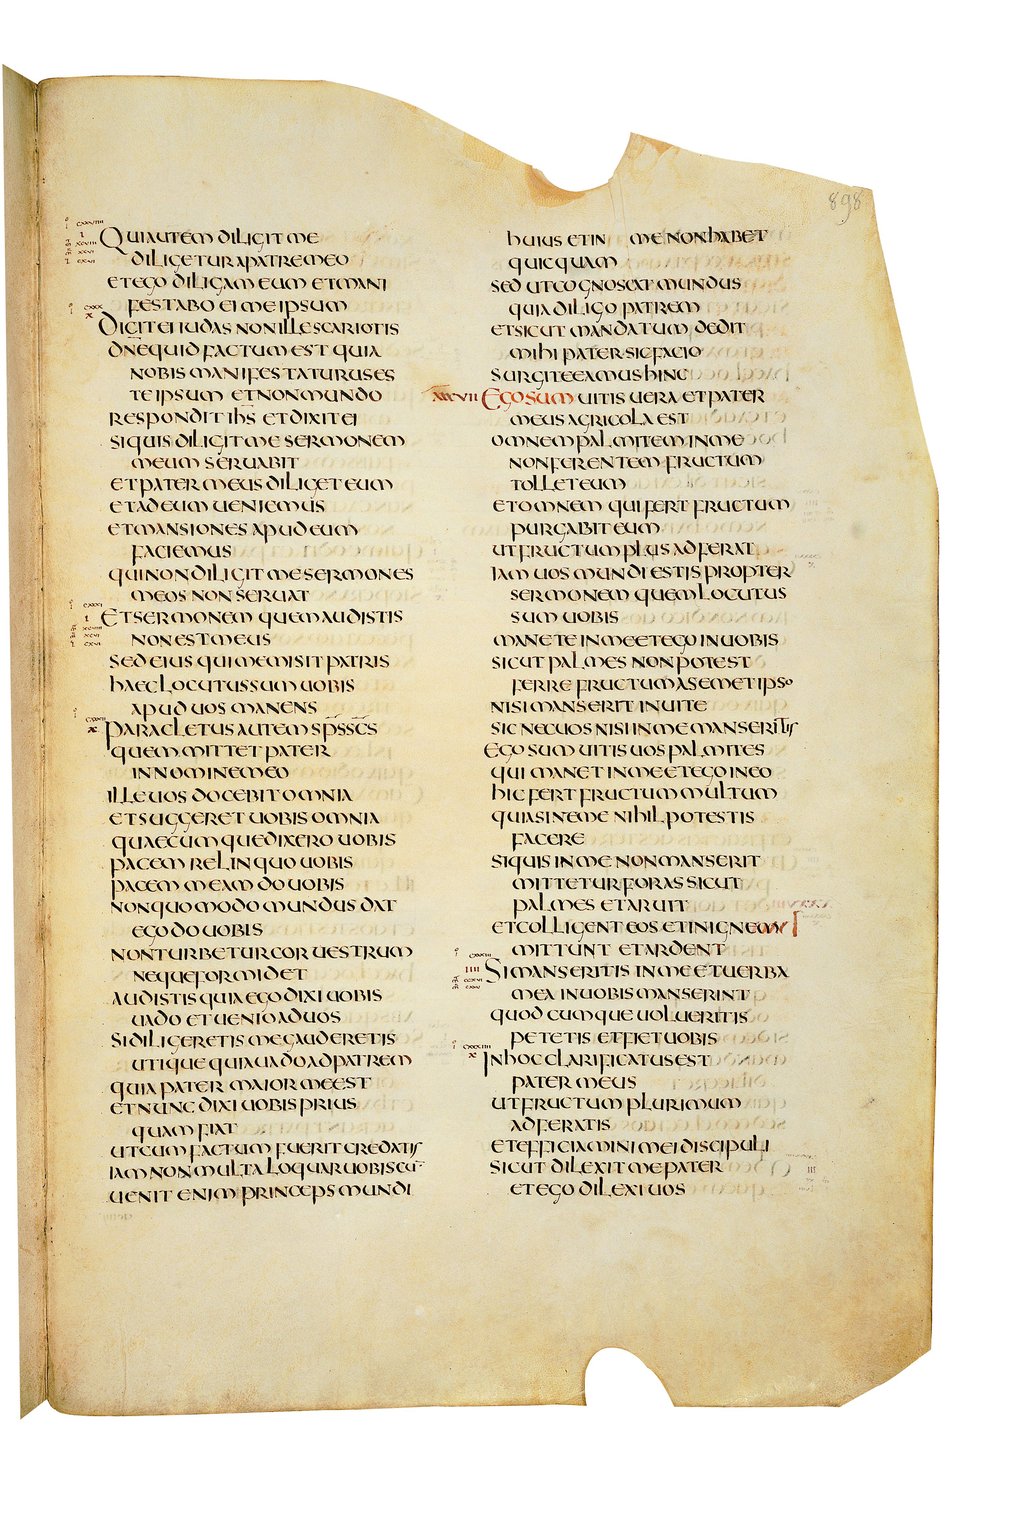 898
Qui autem diligit me
diligetur a patre meo
et ego diligam eum et mani
festabo ei me ipsum
Dicit ei iudas non ille scariotis
dne quid factum est quia
nobis manifestaturus es
te ipsum et non mundo
respondit ihs et dixit ei
si quis diligit me sermonem
meum seruabit
et pater meus diliget eum
et ad eum ueniemus
et mansiones apud eum
faciemus
qui non diligit me sermones
meos non seruat
Et sermonem quem audistis
non est meus
sed eius qui me misit patris
haec locutus sum uobis
apud uos manens
Paracletus autem sps scs
quem mittet pater
in nomine meo
ille uos docebit omnia
et suggeret uobis omnia
quaecumque dixero uobis
pacem relinquo uobis
pacem meam do uobis
non quomodo mundus dat
ego do uobis
non turbetur cor uestrum
neque formidet
audistis quia ego dixi uobis
uado et uenio ad uos
si diligeretis me gauderetis
utique quia uado ad patrem
quia pater maior me est
et nunc dixi uobis prius
quam fiat
ut cum factum fuerit credatis
iam non multa loquar uobiscu
uenit enim princeps mundi
huius et in me non habet
quicquam
sed ut cognoscat mundus
quia diligo patrem
et sicut mandatum dedit
mihi pater sic facio
surgite eamus hinc
XXXVII Ego sum uitis uera et pater
meus agricola est
omnem palmitem in me
non ferentem fructum
tollet eum
et omnem qui fert fructum
purgabit eum
ut fructum plus adferat
iam uos mundi estis propter
sermonem quem locutus
sum uobis
manete in me et ego in uobis
sicut palmes non potest
ferre fructum a semet ipso
nisi manserit in uite
sic nec uos nisi in me manseritis
Ego sum uitis uos palmites
qui manet in me et ego in eo
hic fert fructum multum
quia sine me nihil potestis
facere
si quis in me non manserit
mittetur foras sicut
palmes et aruit
et colligent eos et in ignem
mittunt et ardent
Si manseritis in me et uerba
mea in uobis manserint
quodcumque uolueritis
petetis et fiet uobis
In hoc clarificatus est
pater meus
ut fructum plurimum
adferatis
et efficiamini mei discipuli
sicut dilexit me pater
et ego dilexi uos